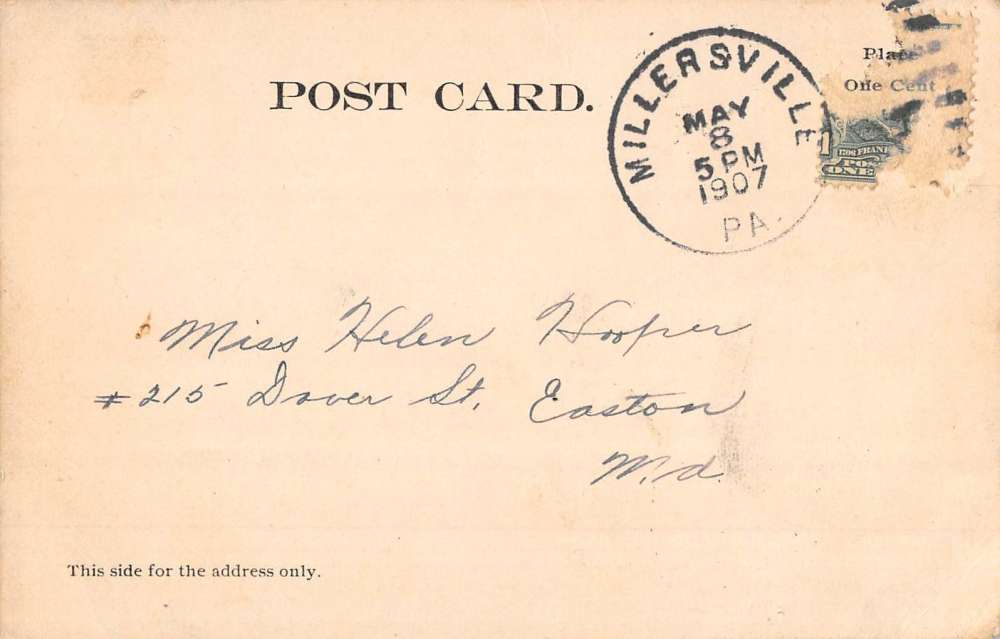 POST CARD.
MILLERSVILLE
MAY
8
5 PM
1907
PA.
Place
One Cent
1
1706 FRANK
PO
ONE
Miss Helen Hooper
# 215 Dover St, Easton
Md
This side for the address only.